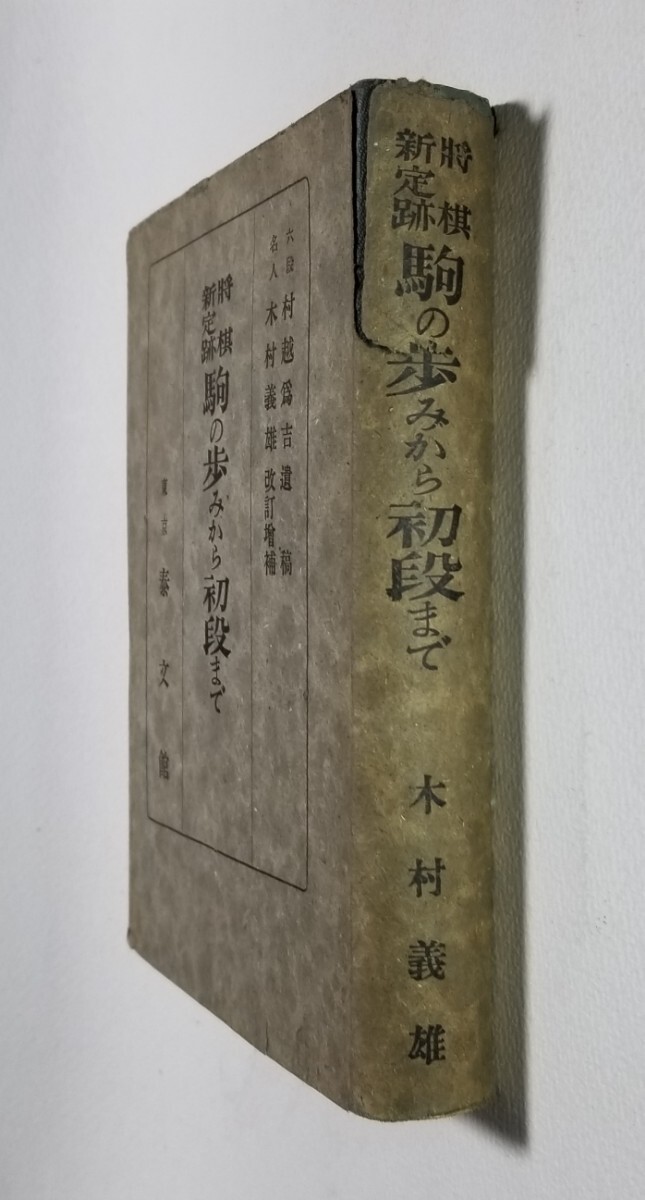 將棋
新定跡
駒の歩みから初段まで
木村義雄
六段 村越爲吉遺稿
名人 木村義雄改訂增補
將棋
新定跡
駒の歩みから初段まで
東京 泰文館